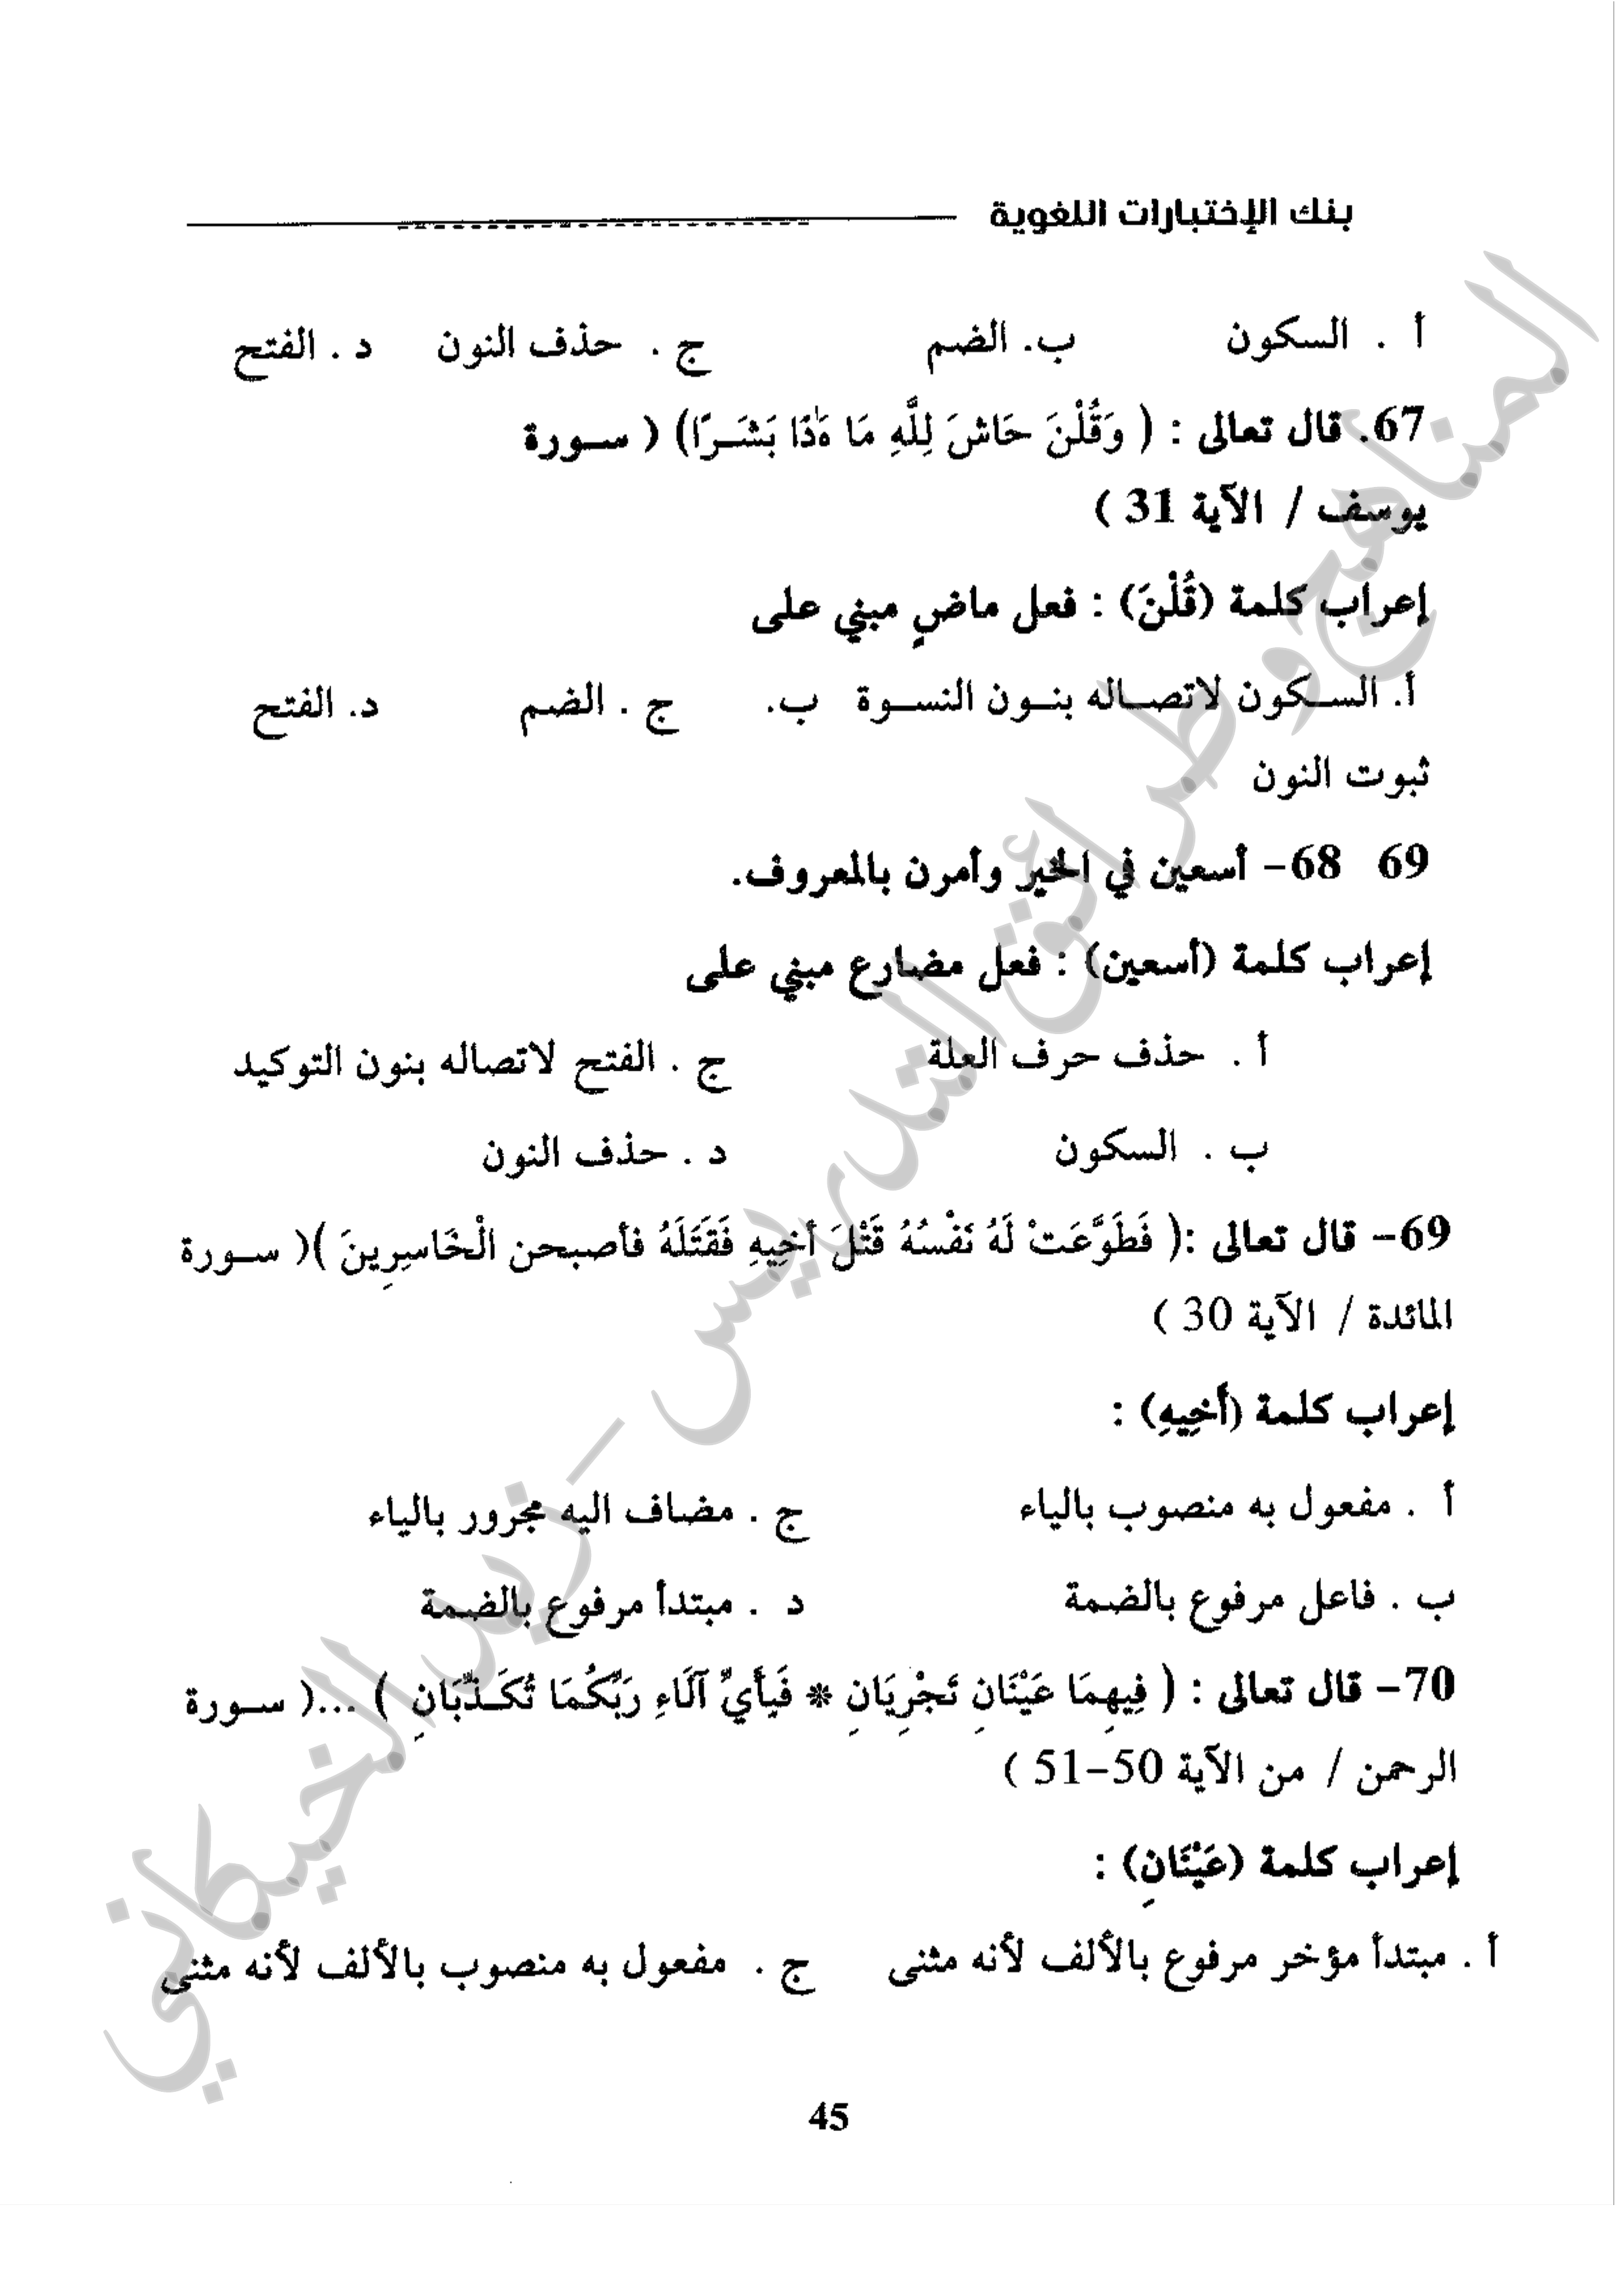 بنك الإختبارات اللغوية
أ . السكون ب. الضم ج . حذف النون د . الفتح
67. قال تعالى : ( وَقُلْنَ حَاشَ لِلَّهِ مَا هَٰذَا بَشَـرًا) ( سـورة
يوسف / الآية 31 )
إعراب كلمة (قُلْنَ) : فعل ماضٍ مبني على
أ. السـكون لاتصـاله بنـون النسـوة ب. ج . الضم د. الفتح
ثبوت النون
69 68- أسعين في الخير وأمرن بالمعروف.
إعراب كلمة (أسعين) : فعل مضارع مبني على
أ . حذف حرف العلة ج . الفتح لاتصاله بنون التوكيد
ب . السكون د . حذف النون
69- قال تعالى :( فَطَوَّعَتْ لَهُ نَفْسُهُ قَتْلَ أَخِيهِ فَقَتَلَهُ فأصبحن الْخَاسِرِينَ )( سـورة
المائدة / الآية 30 )
إعراب كلمة (أَخِيهِ) :
أ . مفعول به منصوب بالياء ج . مضاف اليه مجرور بالياء
ب . فاعل مرفوع بالضمة د . مبتدأ مرفوع بالضمة
70- قال تعالى : ( فِيهِمَا عَيْنَانِ تَجْرِيَانِ * فَبِأَيِّ آلَاءِ رَبِّكُمَا تُكَـذِّبَانِ ) ...( سـورة
الرحمن / من الآية 50-51 )
إعراب كلمة (عَيْنَانِ) :
أ . مبتدأ مؤخر مرفوع بالألف لأنه مثنى ج . مفعول به منصوب بالألف لأنه مثنى
45
المناهج وطرائق التدريس - زيد الخيكاني